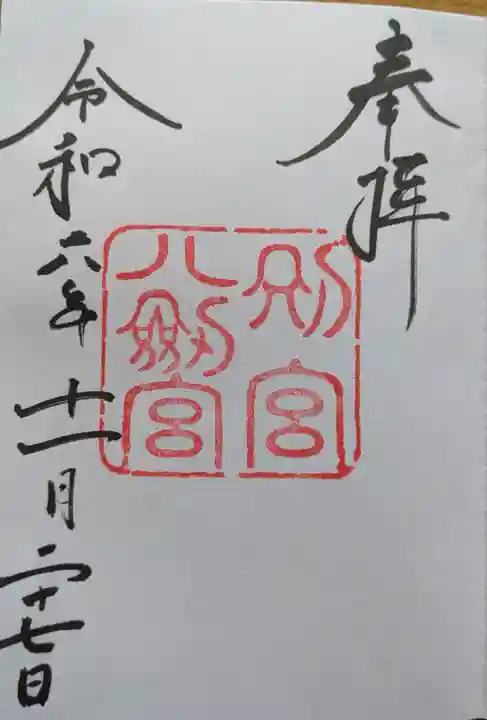 奉拝
別宮
八剱宮
令和六年十一月二十七日